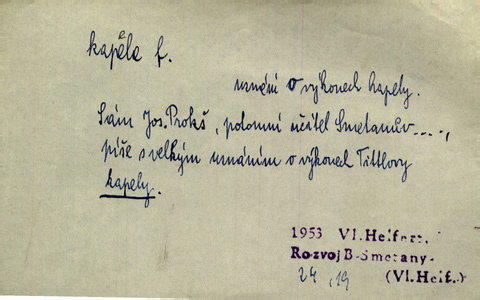 kapela f.
uznání o výkonech kapely.
Sám Jos. Proksch, potomní učitel Smetanův...,
píše s velkým uznáním o výkonech Tittlovy
kapely.
1953 Vl. Helfert,
Rozvoj B. Smetany
24, 19 (Vl. Helf.)